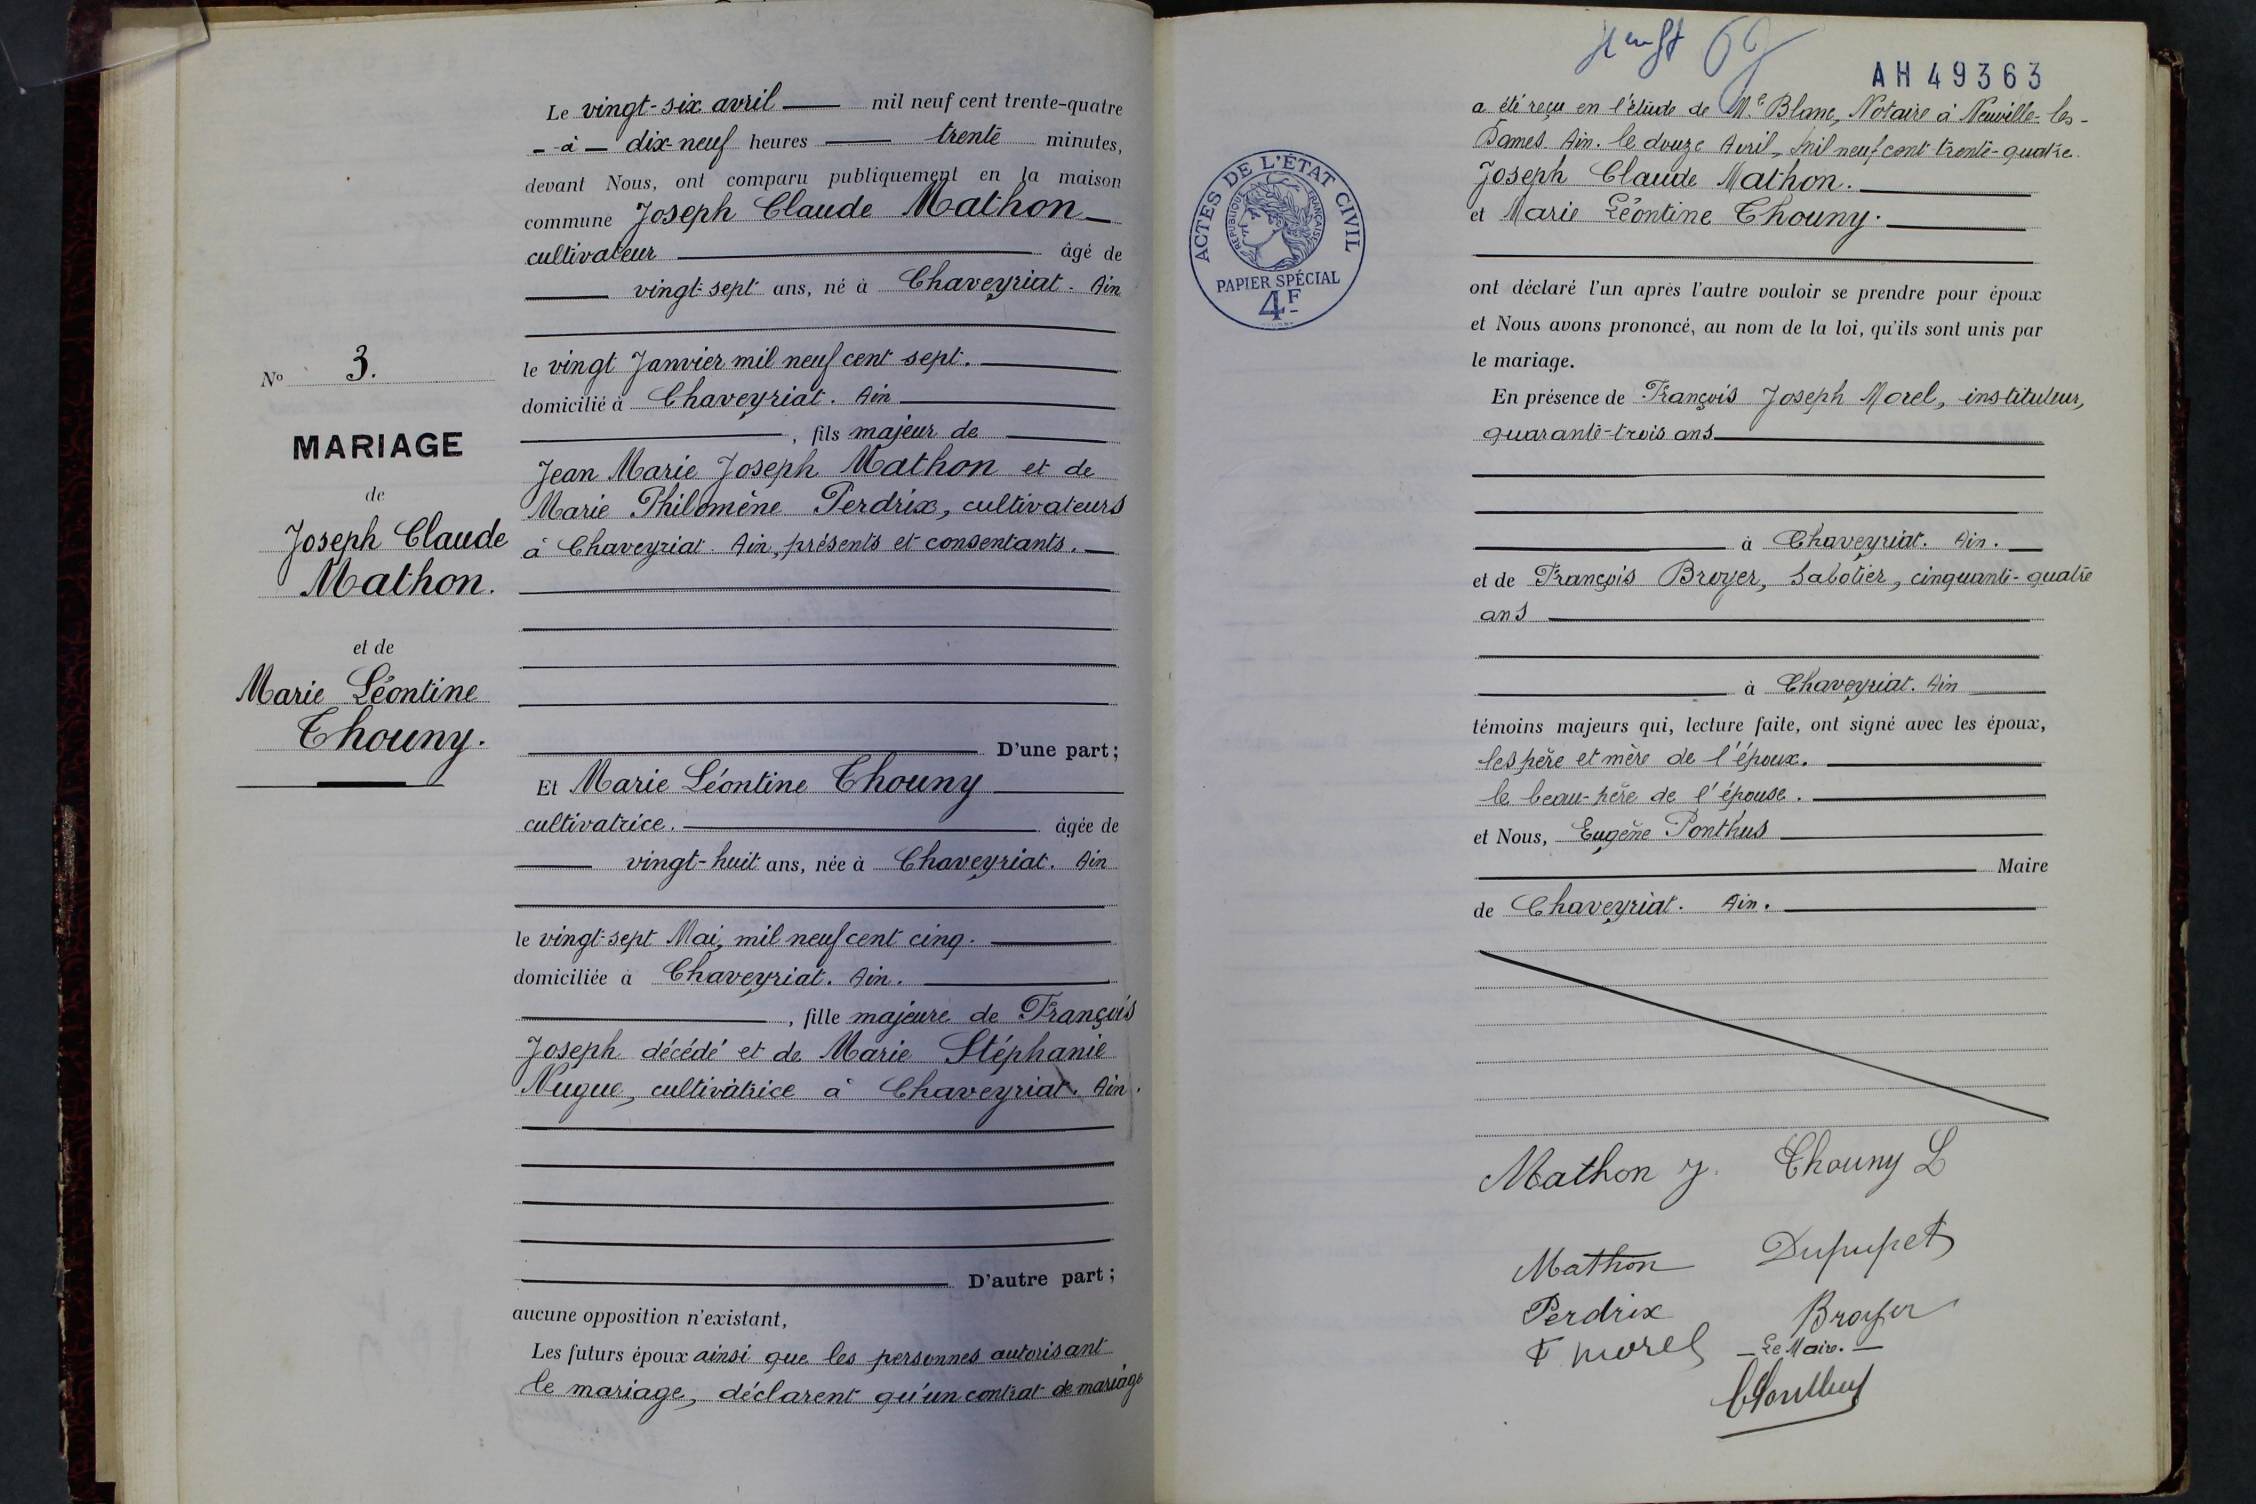 N° 3.
MARIAGE
de
Joseph Claude
Mathon.
et de
Marie Léontine
Thouny.
Le vingt-six avril — mil neuf cent trente-quatre
- à - dix-neuf heures — trente minutes,
devant Nous, ont comparu publiquement en la maison
commune Joseph Claude Mathon —
cultivateur — âgé de
— vingt-sept ans, né à Chaveyriat. Ain
le vingt Janvier mil neuf cent sept. —
domicilié à Chaveyriat. Ain —
—, fils majeur de —
Jean Marie Joseph Mathon et de
Marie Philomène Perdrix, cultivateurs
à Chaveyriat. Ain, présents et consentants. —
— D'une part;
Et Marie Léontine Thouny —
cultivatrice. — âgée de
— vingt-huit ans, née à Chaveyriat. Ain
le vingt-sept Mai, mil neuf cent cinq. —
domiciliée à Chaveyriat. Ain. —
—, fille majeure de François
Joseph décédé et de Marie Stéphanie
Nugue, cultivatrice à Chaveyriat. Ain.
— D'autre part;
aucune opposition n'existant,
Les futurs époux ainsi que les personnes autorisant
le mariage, déclarent qu'un contrat de mariage
AH 49363
ACTES DE L'ÉTAT CIVIL
RÉPUBLIQUE FRANÇAISE
PAPIER SPÉCIAL
4F
a été reçu en l'étude de Me Blanc, Notaire à Neuville-les-
Dames. Ain. le douze Avril, mil neuf cent trente-quatre.
Joseph Claude Mathon. —
et Marie Léontine Thouny. —
ont déclaré l'un après l'autre vouloir se prendre pour époux
et Nous avons prononcé, au nom de la loi, qu'ils sont unis par
le mariage.
En présence de François Joseph Morel, instituteur,
quarante-trois ans —
— à Chaveyriat. Ain. —
et de François Broyer, Sabotier, cinquante-quatre
ans —
— à Chaveyriat. Ain —
témoins majeurs qui, lecture faite, ont signé avec les époux,
les père et mère de l'époux. —
le beau-père de l'épouse. —
et Nous, Eugène Ponthus —
— Maire
de Chaveyriat. Ain. —
Mathon J. Thouny L
Mathon Dupupet
Perdrix Broyer
F Morel — Le Maire. —
EPonthus